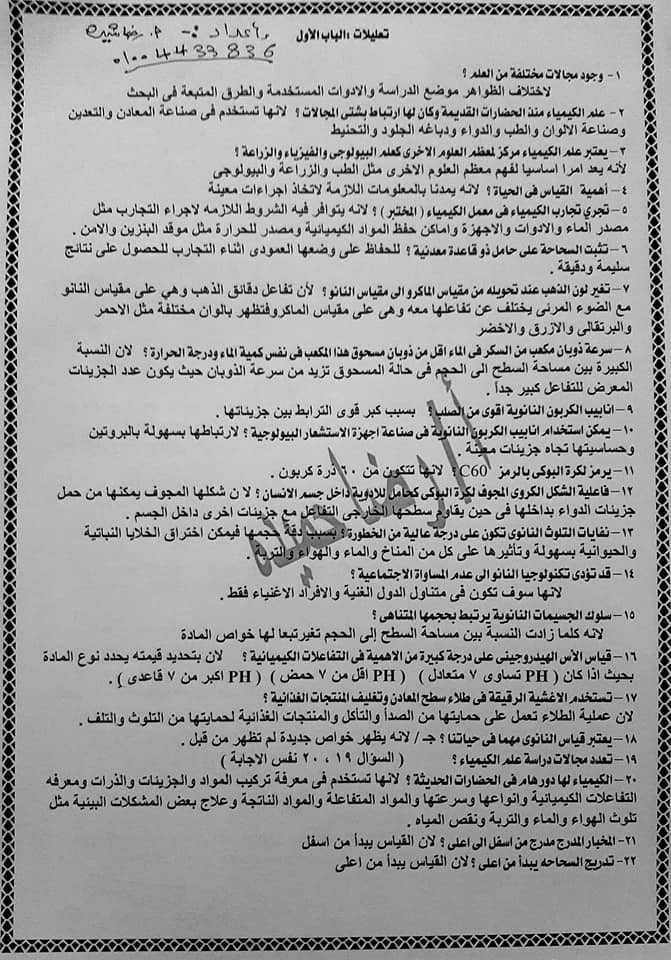 تعليلات : الباب الأول
إعداد :- أ. رضا
01004439836
١- وجود مجالات مختلفة من العلم ؟
لاختلاف الظواهر موضع الدراسة والادوات المستخدمة والطرق المتبعة فى البحث
٢- علم الكيمياء منذ الحضارات القديمة وكان لها ارتباط بشتى المجالات ؟ لانها تستخدم فى صناعة المعادن والتعدين
وصناعة الالوان والطب والدواء ودباغه الجلود والتحنيط
٣- يعتبر علم الكيمياء مركز لمعظم العلوم الاخرى كعلم البيولوجى والفيزياء والزراعة ؟
لأنه يعد امرا اساسيا لفهم معظم العلوم الاخرى مثل الطب والزراعة والبيولوجى
٤- أهمية القياس فى الحياة ؟ لانه يمدنا بالمعلومات اللازمة لاتخاذ اجراءات معينة
٥- تجري تجارب الكيمياء فى معمل الكيمياء ( المختبر ) ؟ لانه يتوافر فيه الشروط اللازمه لاجراء التجارب مثل
مصدر الماء والادوات والاجهزة واماكن حفظ المواد الكيميائية ومصدر للحرارة مثل موقد البنزين والامن .
٦- تثبت السحاحة على حامل ذو قاعدة معدنية ؟ للحفاظ على وضعها العمودى اثناء التجارب للحصول على نتائج
سليمة ودقيقة .
٧- تغير لون الذهب عند تحويله من مقياس الماكرو الى مقياس النانو ؟ لأن تفاعل دقائق الذهب وهي على مقياس النانو
مع الضوء المرئى يختلف عن تفاعلها معه وهى على مقياس الماكروفتظهر بالوان مختلفة مثل الاحمر
والبرتقالى والازرق والاخضر
٨- سرعة ذوبان مكعب من السكر فى الماء اقل من ذوبان مسحوق هذا المكعب فى نفس كمية الماء ودرجة الحرارة ؟ لان النسبة
الكبيرة بين مساحة السطح الى الحجم فى حالة المسحوق تزيد من سرعة الذوبان حيث يكون عدد الجزيئات
المعرض للتفاعل كبير جداً .
٩- انابيب الكربون النانوية اقوى من الصلب ؟ بسبب كبر قوى الترابط بين جزيئاتها .
١٠- يمكن استخدام انابيب الكربون النانوية فى صناعة اجهزة الاستشعار البيولوجية ؟ لارتباطها بسهولة بالبروتين
وحساسيتها تجاه جزيئات معينة
١١- يرمز لكرة البوكى بالرمز C60 ؟ لانها تتكون من ٦٠ ذرة كربون .
١٢- فاعلية الشكل الكروى المجوف لكرة البوكى كحامل للادوية داخل جسم الانسان ؟ لا ن شكلها المجوف يمكنها من حمل
جزيئات الدواء بداخلها فى حين يقاوم سطحها الخارجى التفاعل مع جزيئات اخرى داخل الجسم .
١٣- نفايات التلوث النانوى تكون على درجة عالية من الخطورة ؟ بسبب دقة حجمها فيمكن اختراق الخلايا النباتية
والحيوانية بسهولة وتأثيرها على كل من المناخ والماء والهواء والتربة .
١٤- قد تؤدى تكنولوجيا النانو الى عدم المساواة الاجتماعية ؟
لانها سوف تكون فى متناول الدول الغنية والافراد الاغنياء فقط .
١٥- سلوك الجسيمات النانوية يرتبط بحجمها المتناهى ؟
لانه كلما زادت النسبة بين مساحة السطح إلى الحجم تغيرتبعا لها خواص المادة
١٦- قياس الأس الهيدروجينى على درجة كبيرة من الاهمية فى التفاعلات الكيميائية ؟ لان بتحديد قيمته يحدد نوع المادة
بحيث اذا كان ( PH تساوى ٧ متعادل ) ( PH اقل من ٧ حمض ) ( PH اكبر من ٧ قاعدى ) .
١٧- تستخدم الاغشية الرقيقة فى طلاء سطح المعادن وتغليف المنتجات الغذائية ؟
لان عملية الطلاء تعمل على حمايتها من الصدأ والتأكل والمنتجات الغذائية لحمايتها من التلوث والتلف .
١٨- يعتبر قياس النانوى مهما فى حياتنا ؟ جـ/ لانه يظهر خواص جديدة لم تظهر من قبل .
١٩- تعدد مجالات دراسة علم الكيمياء ؟ ( السؤال ١٩ ، ٢٠ نفس الاجابة )
٢٠- الكيمياء لها دورهام فى الحضارات الحديثة ؟ لانها تستخدم فى معرفة تركيب المواد والجزيئات والذرات ومعرفه
التفاعلات الكيميائية وانواعها وسرعتها والمواد المتفاعلة والمواد الناتجة وعلاج بعض المشكلات البيئية مثل
تلوث الهواء والماء والتربة ونقص المياه .
٢١- المخبار المدرج مدرج من اسفل الى اعلى ؟ لان القياس يبدأ من اسفل
٢٢- تدريج السحاحه يبدأ من اعلى ؟ لان القياس يبدأ من اعلى